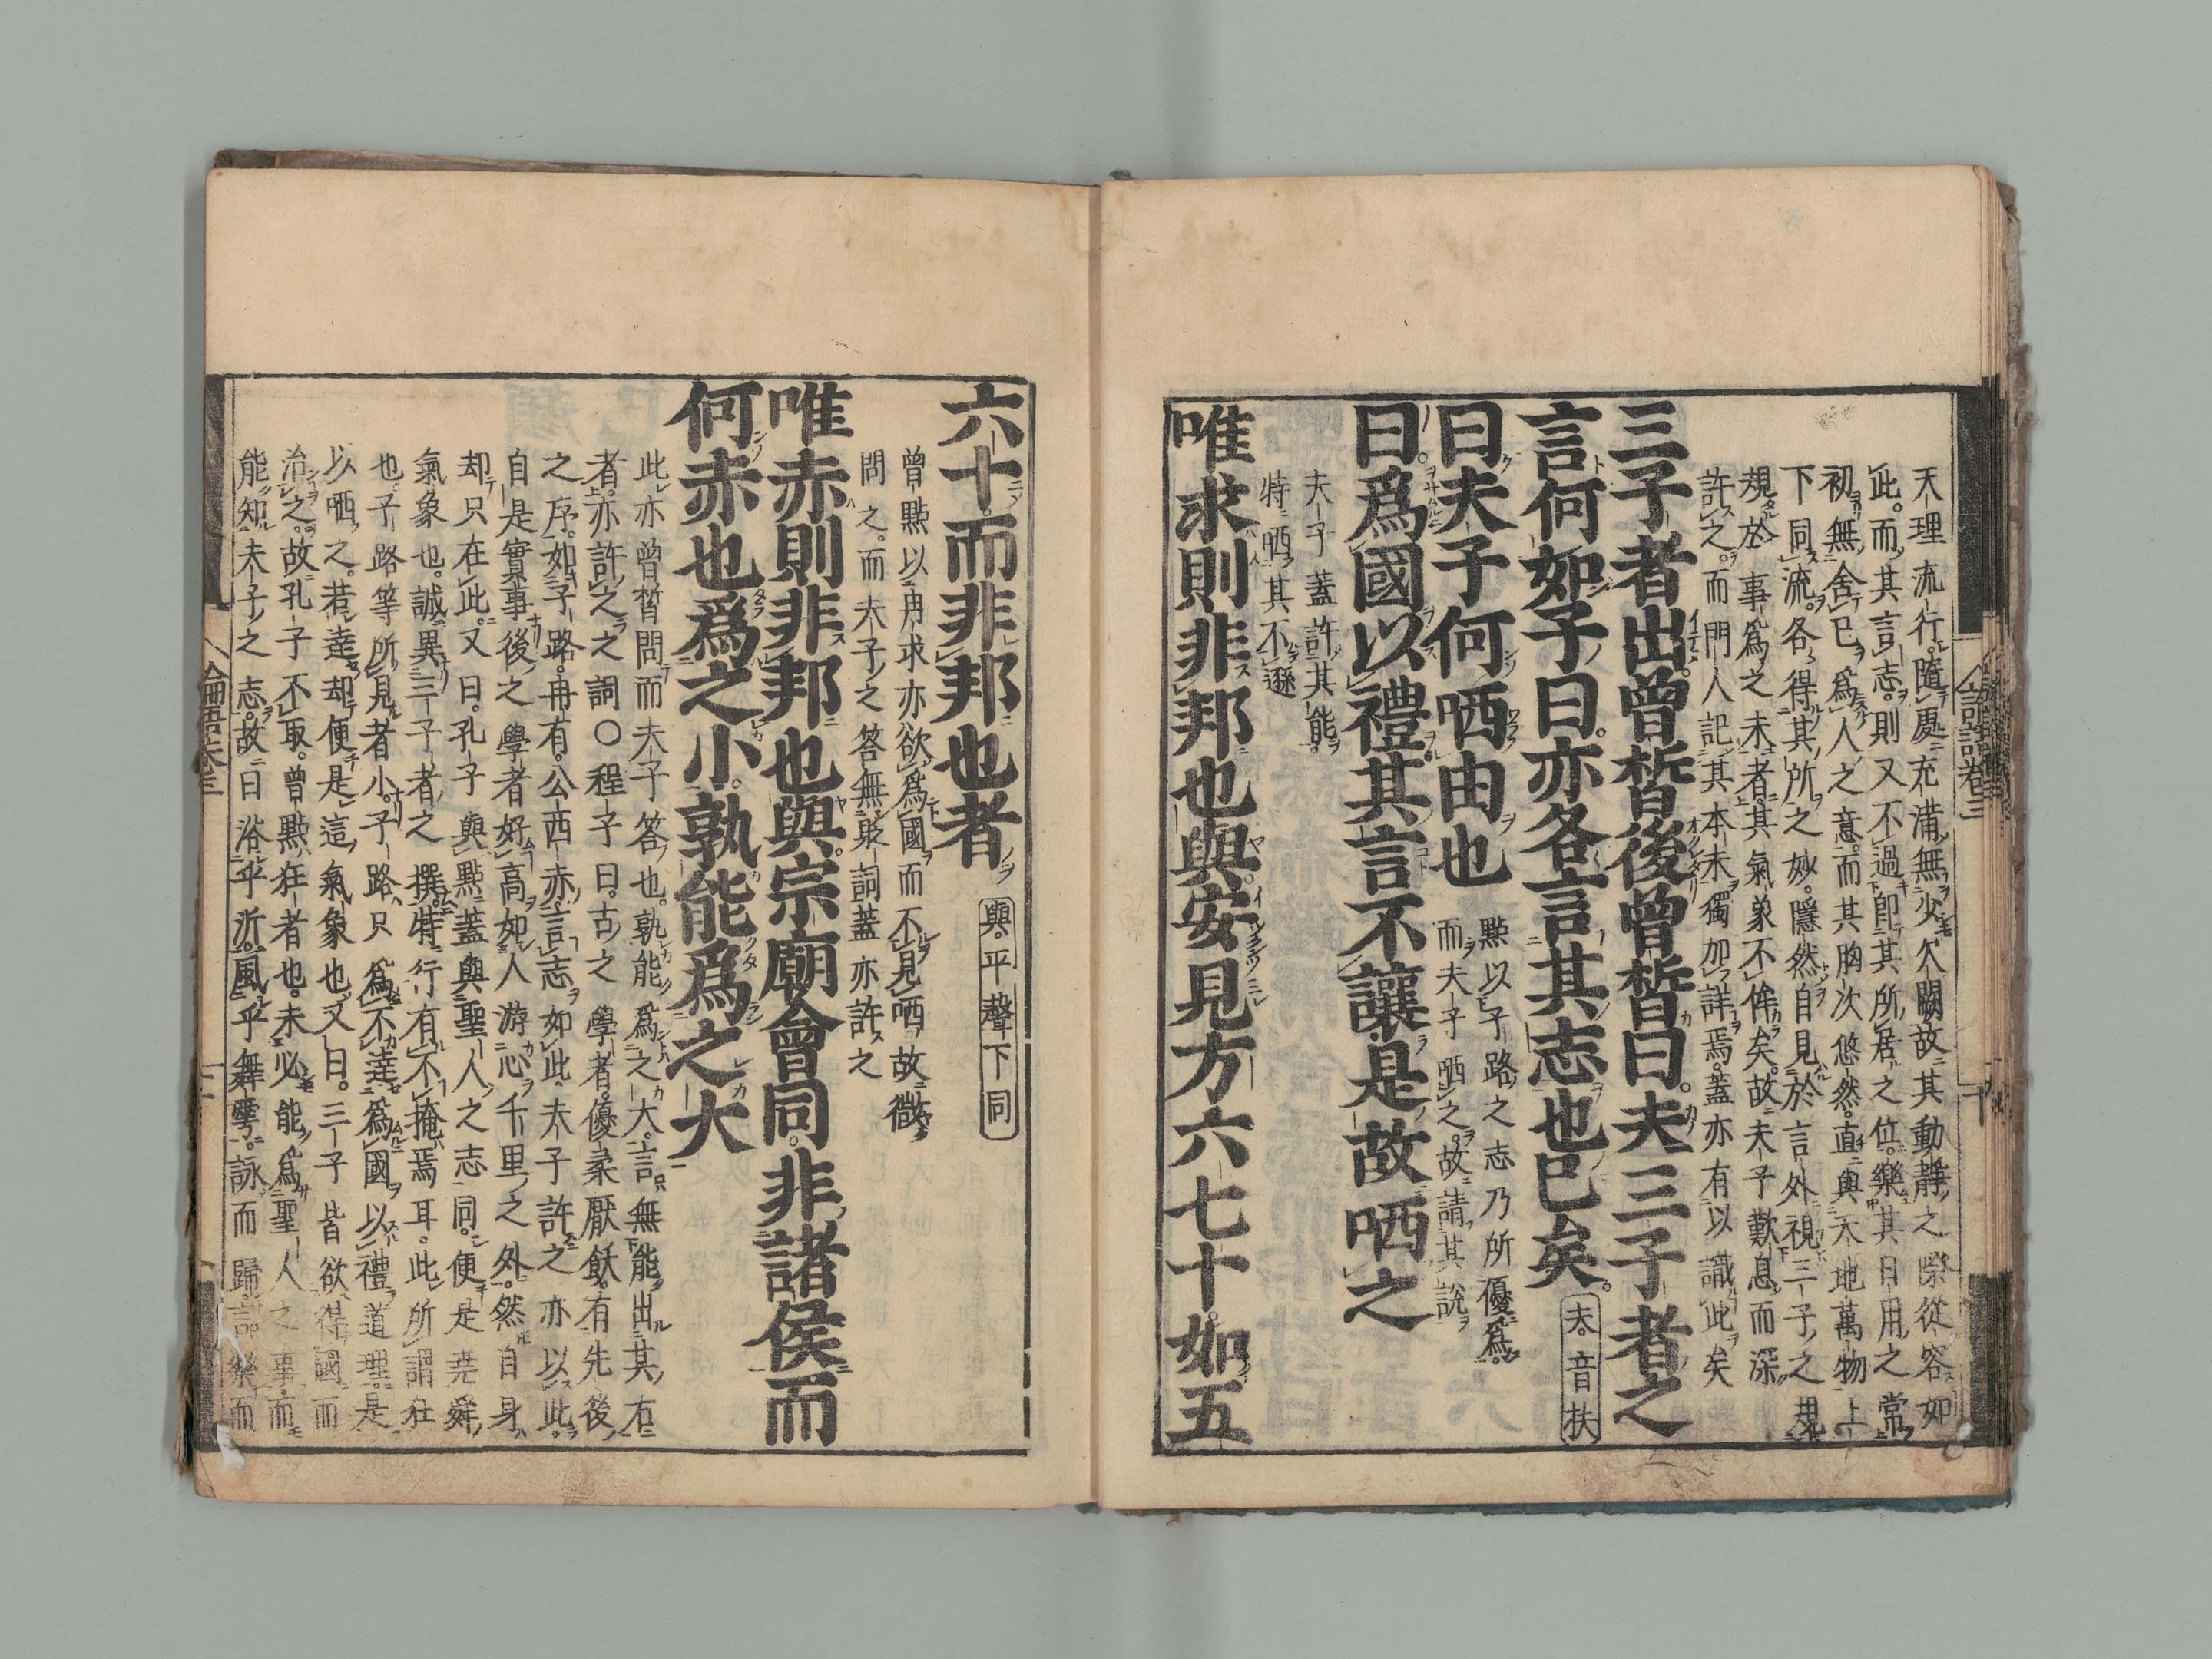 天理流行隨處充滿無少欠闕故其動靜之際從容如
此而其言志則又不過即其所居之位樂其日用之常
初無舍已爲人之意而其胸次悠然直與天地萬物上
下同流各得其所之妙隱然自見於言外視三子之規
規於事爲之末者其氣象不侔矣故夫子歎息而深
許之而門人記其本末獨加詳焉蓋亦有以識此矣
三子者出曾皙後曾皙曰夫三子者之
言何如子曰亦各言其志也已矣 夫音扶
曰夫子何哂由也 點以子路之志乃所優爲
而夫子哂之故請其說
曰爲國以禮其言不讓是故哂之
夫子蓋許其能
特哂其不遜
唯求則非邦也與安見方六七十如五
論語卷三
六十而非邦也者 與平聲下同
曾點以冉求亦欲爲國而不見哂故微
問之而夫子之答無貶詞蓋亦許之
唯赤則非邦也與宗廟會同非諸侯而
何赤也爲之小孰能爲之大
此亦曾皙問而夫子答也孰能爲之大言無能出其右
者亦許之之詞○程子曰古之學者優柔厭飫有先後
之序如子路冉有公西赤言志如此夫子許之亦以此
自是實事後之學者好高如人游心千里之外然自身
却只在此又曰孔子與點蓋與聖人之志同便是堯舜
氣象也誠異三子者之撰特行有不掩焉耳此所謂狂
也子路等所見者小子路只爲不達爲國以禮道理是
以哂之若達却便是這氣象也又曰三子皆欲得國而
治之故孔子不取曾點狂者也未必能爲聖人之事而
能知夫子之志故曰浴乎沂風乎舞雩詠而歸言樂而
論語卷三